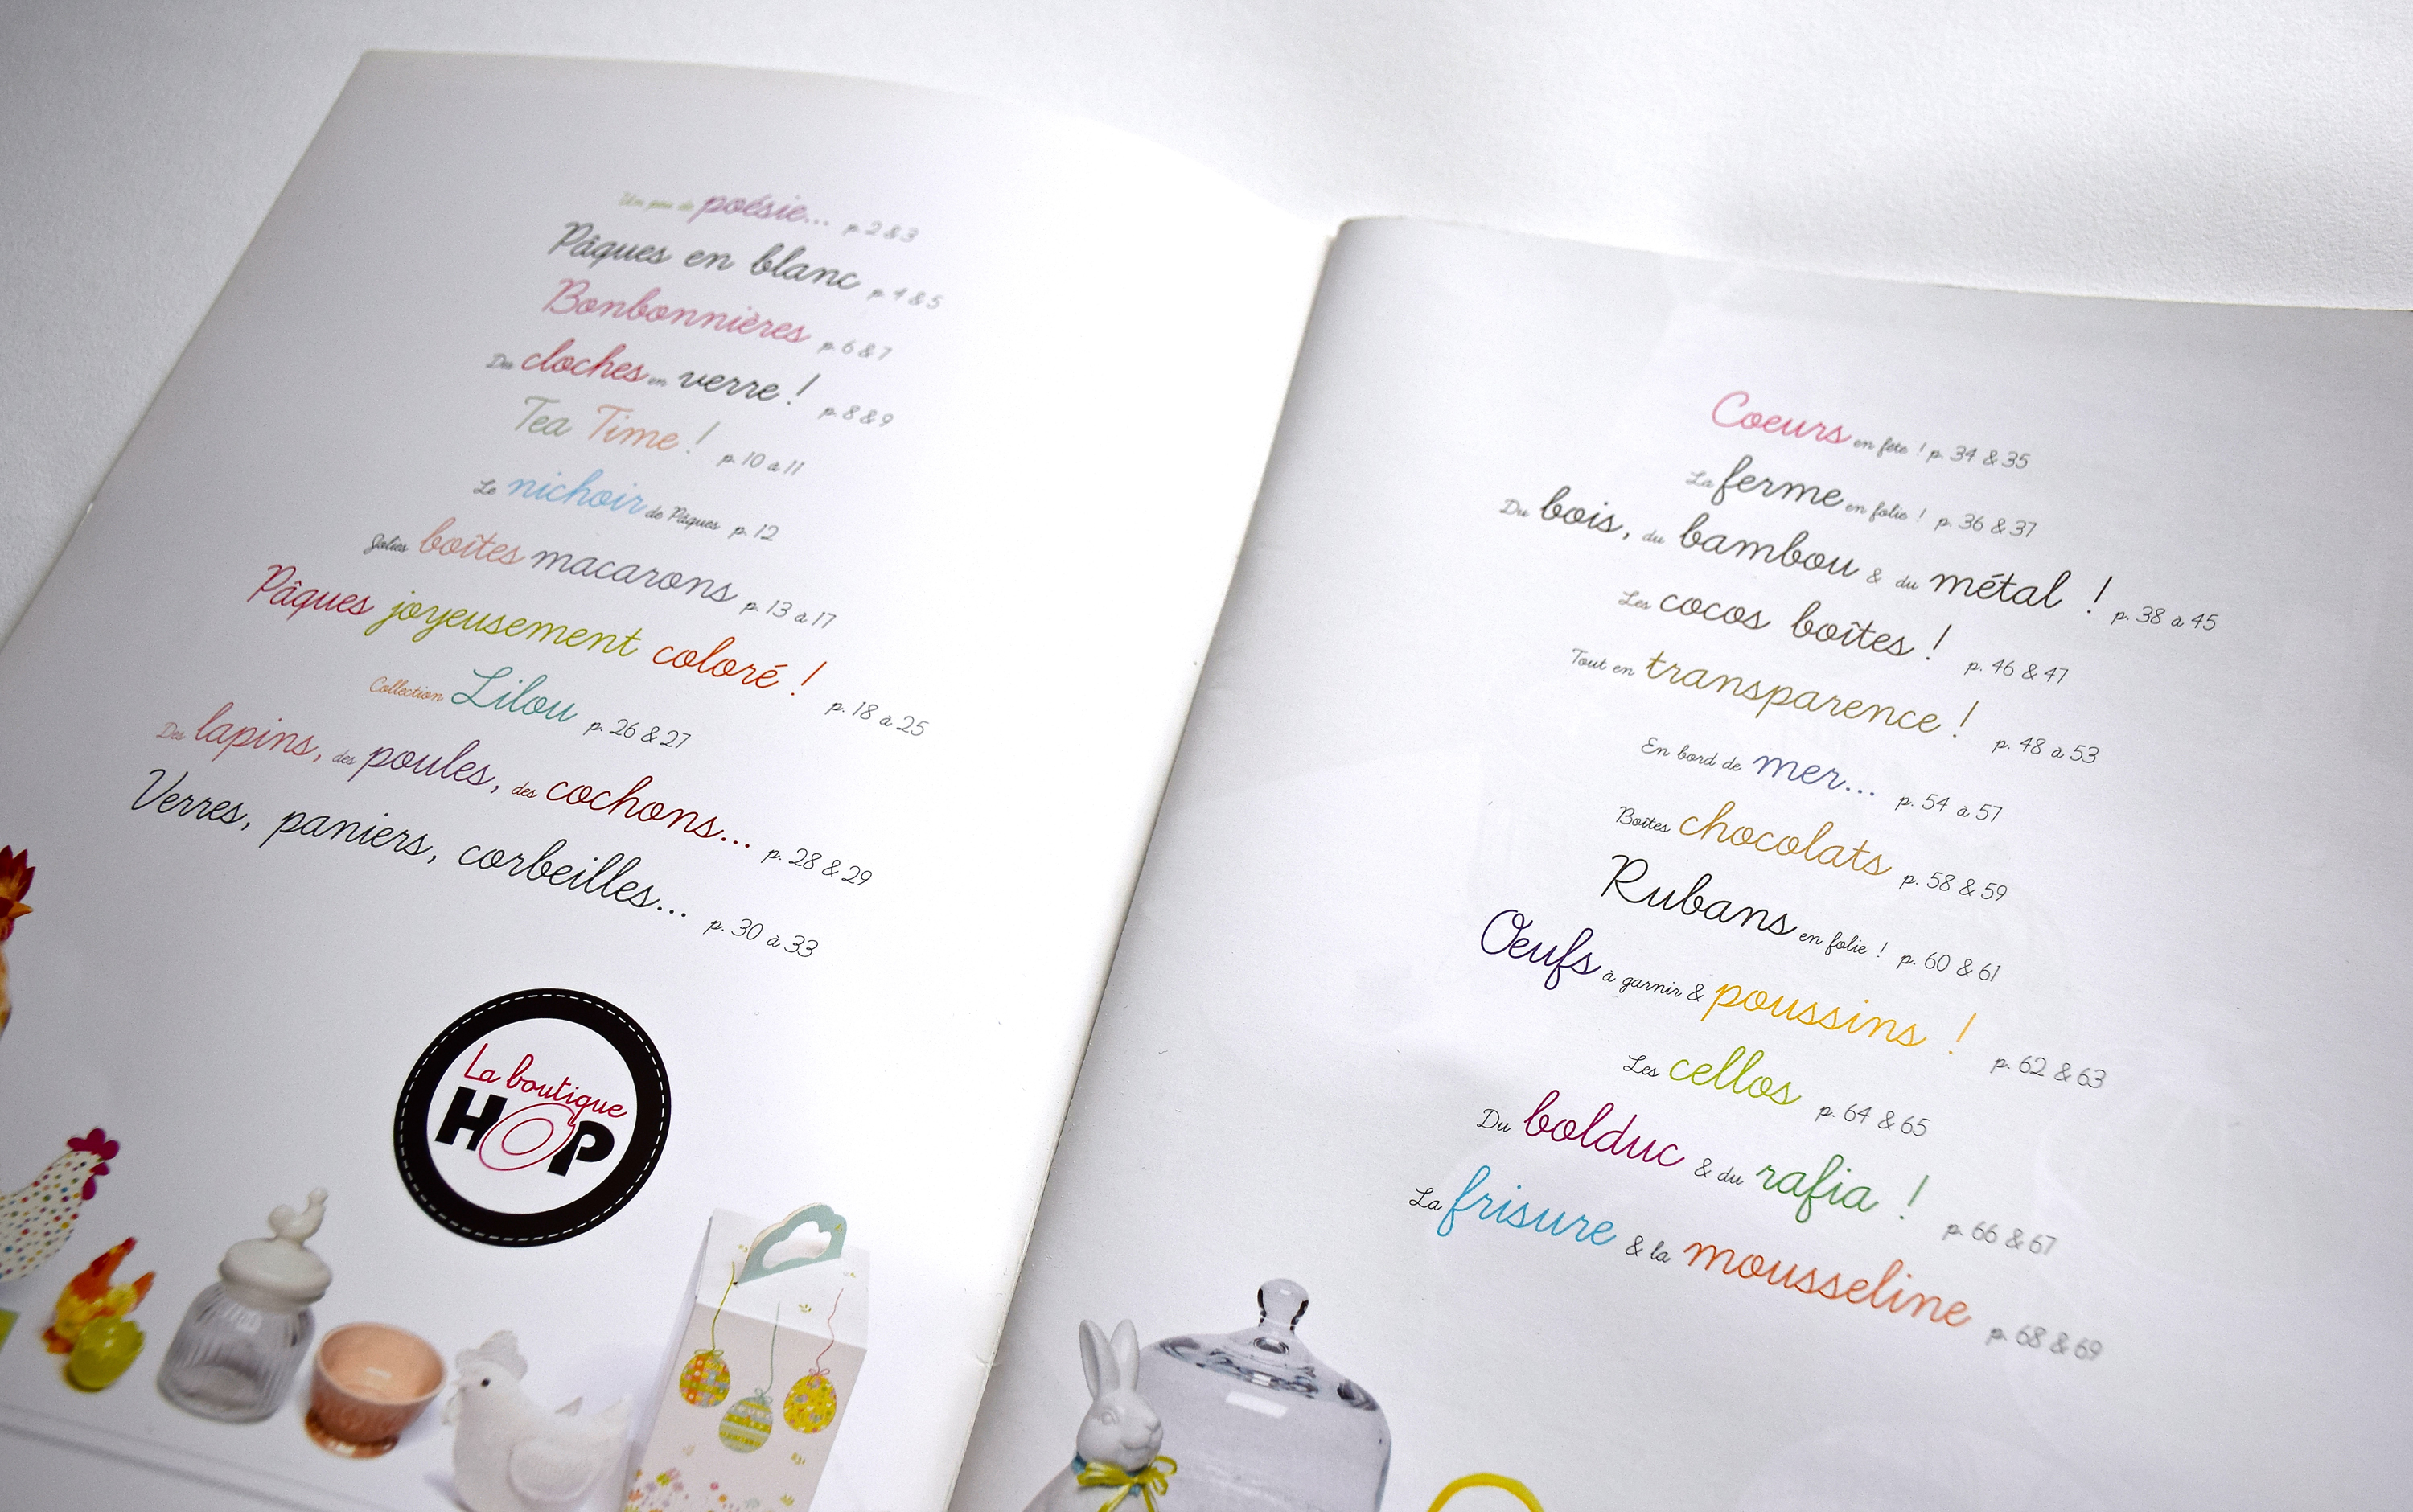 Un peu de poésie... p. 2 & 3
Pâques en blanc p. 4 & 5
Bonbonnières p. 6 & 7
Des cloches en verre ! p. 8 & 9
Tea Time ! p. 10 à 11
Le nichoir de Pâques p. 12
Jolies boîtes macarons p. 13 à 17
Pâques joyeusement coloré ! p. 18 à 25
Collection Lilou p. 26 & 27
Des lapins, des poules, des cochons... p. 28 & 29
Verres, paniers, corbeilles... p. 30 à 33
La boutique
HOP
Coeurs en fête ! p. 34 & 35
La ferme en folie ! p. 36 & 37
Du bois, du bambou & du métal ! p. 38 à 45
Les cocos boîtes ! p. 46 & 47
Tout en transparence ! p. 48 à 53
En bord de mer... p. 54 à 57
Boîtes chocolats p. 58 & 59
Rubans en folie ! p. 60 & 61
Œufs à garnir & poussins ! p. 62 & 63
Les cellos p. 64 & 65
Du bolduc & du rafia ! p. 66 & 67
La frisure & la mousseline p. 68 & 69